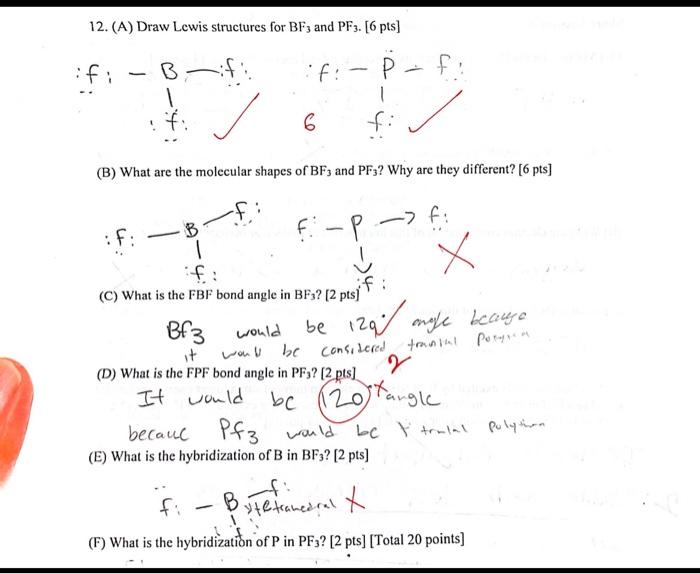 12. (A) Draw Lewis structures for BF₃ and PF₃. [6 pts]
:f: — B — :f: :f: — P — f:
:f: 6 f:
(B) What are the molecular shapes of BF₃ and PF₃? Why are they different? [6 pts]
f:
:f: — B f: — P → f:
:f: :f:
(C) What is the FBF bond angle in BF₃? [2 pts]
Bf3 would be 120° angle because
it would be considered
2
(D) What is the FPF bond angle in PF₃? [2 pts]
It would be 120 angle
becauc Pf3 would be
(E) What is the hybridization of B in BF₃? [2 pts]
f: — B f:
(F) What is the hybridization of P in PF₃? [2 pts] [Total 20 points]